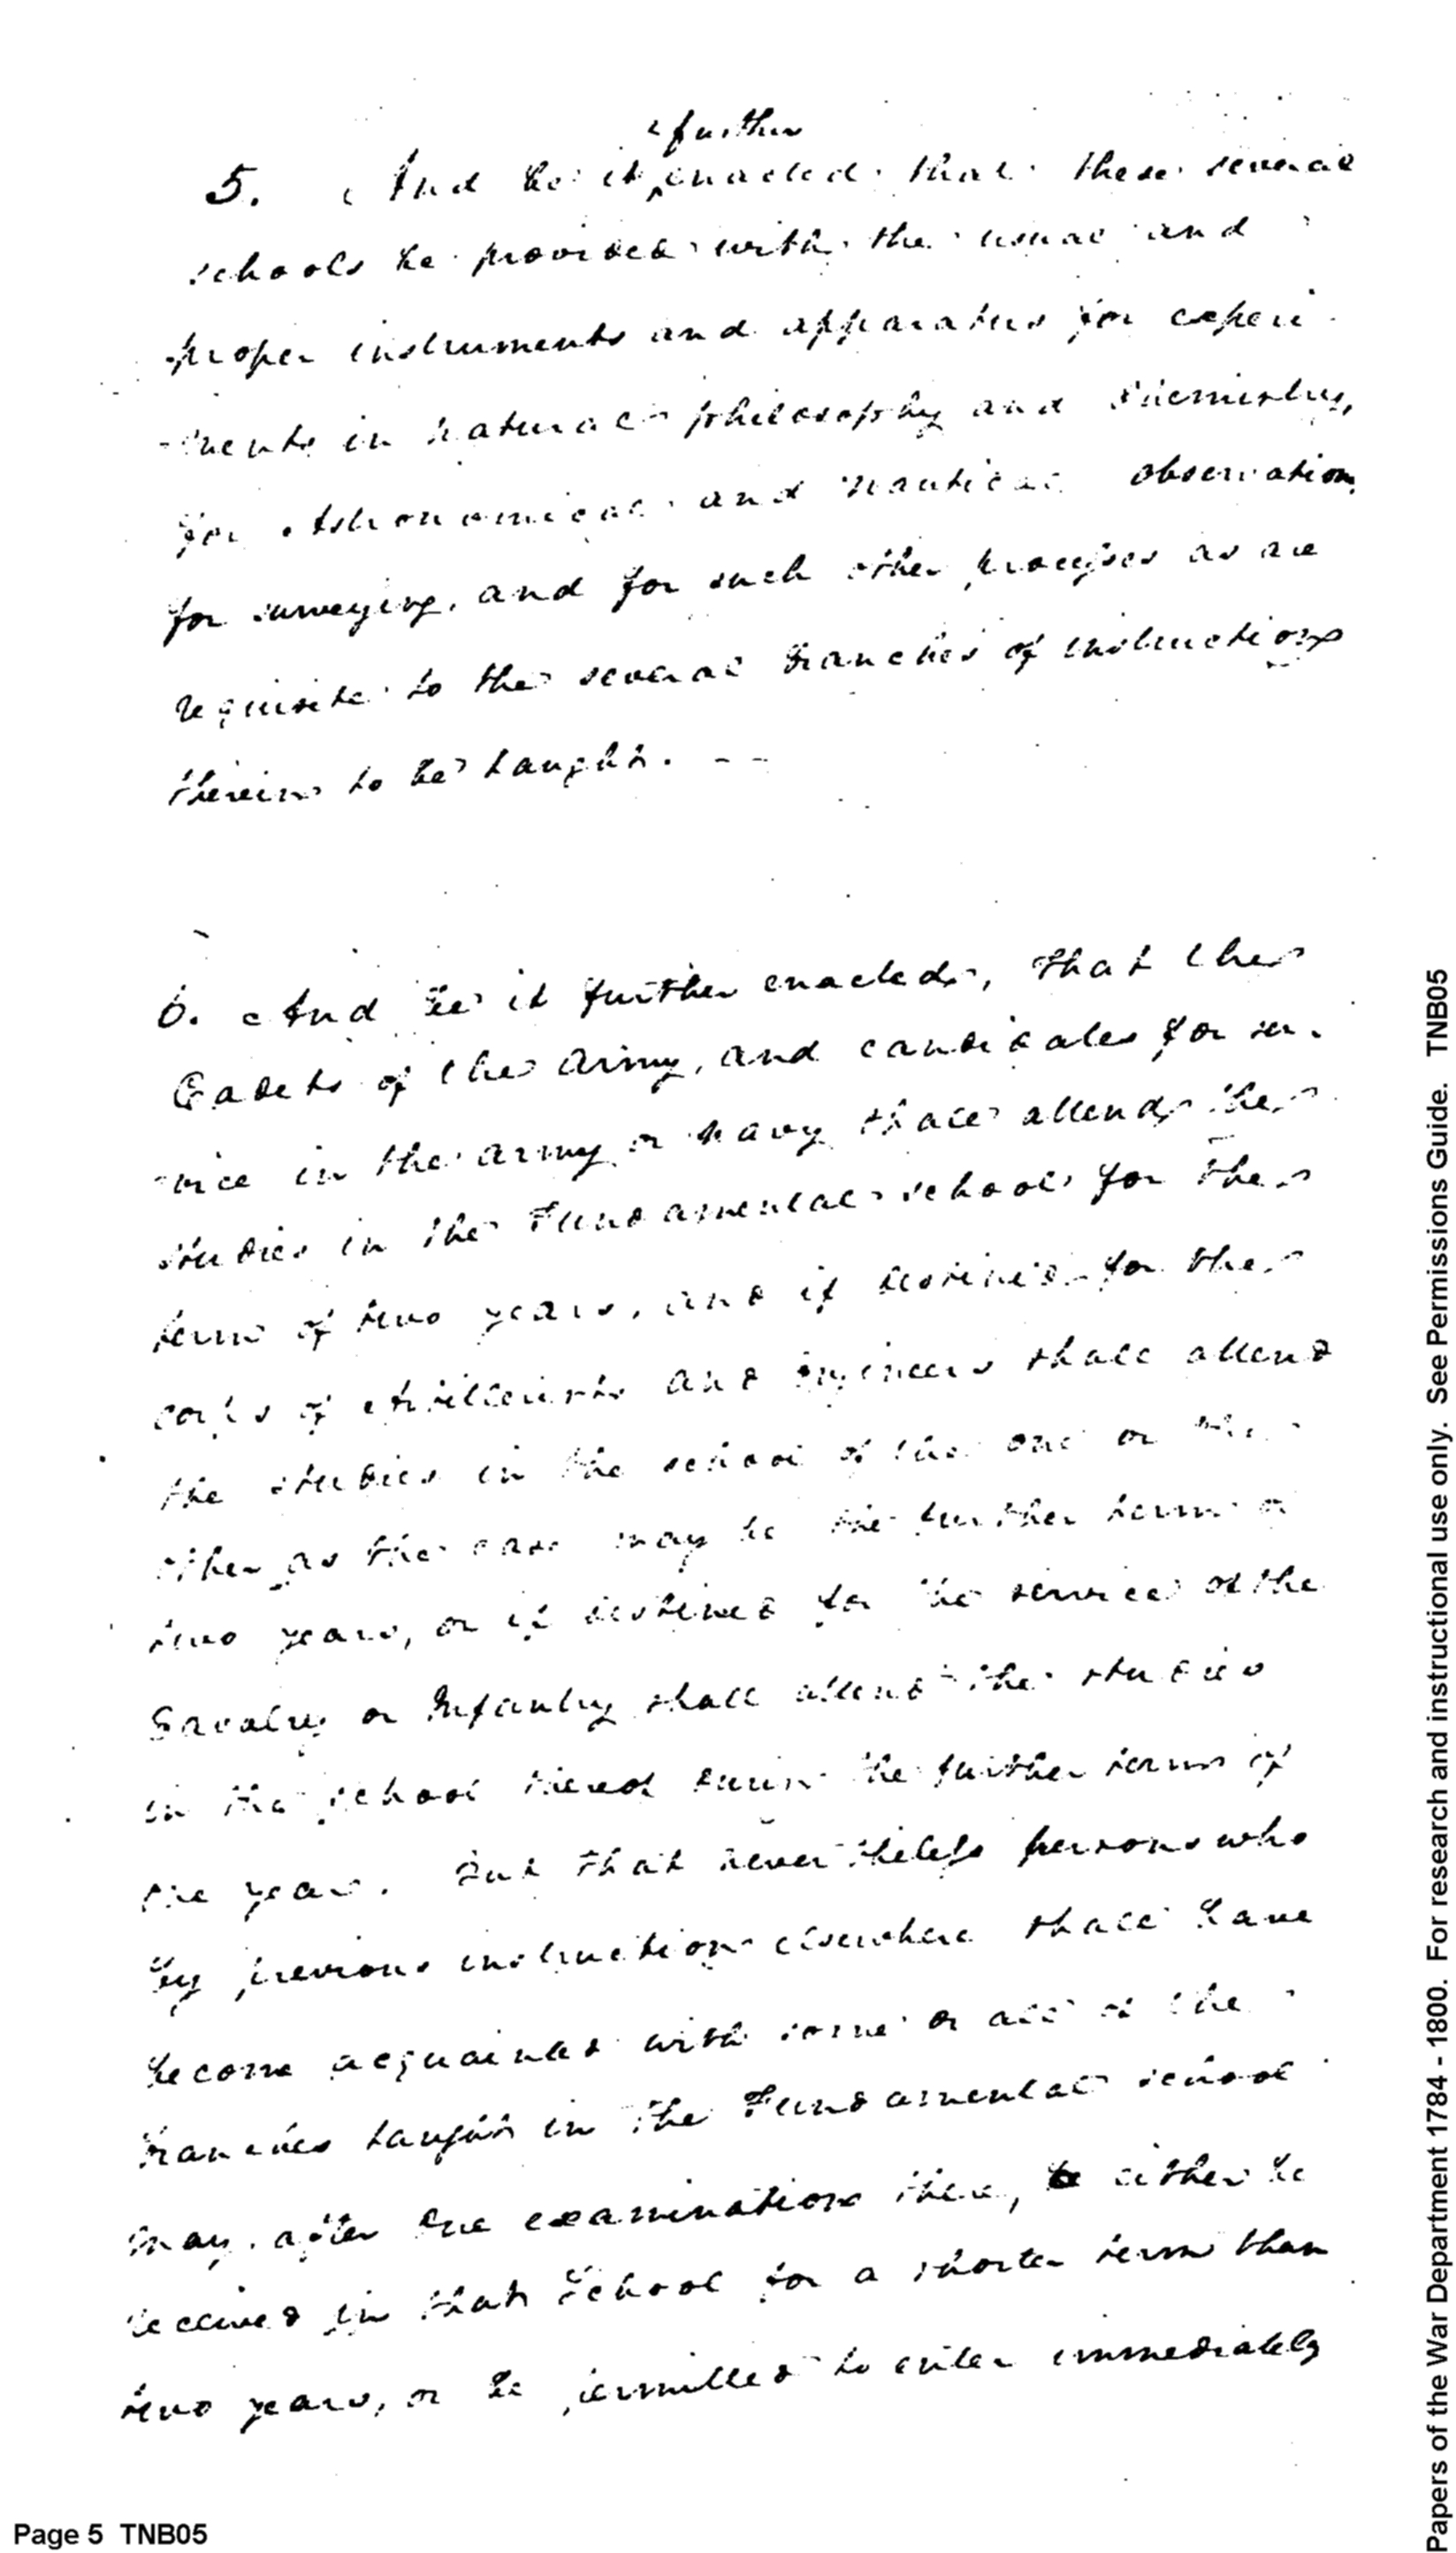 further
5. And be it ^ enacted that these several
schools be provided with the usual and
proper instruments and apparatus for experi
-ments in natural philosophy and Chemistry,
for Astronomical and nautical observation,
for surveying, and for such other processes as are
requisite to the several branches of instruction
therein to be taught. --
6. And be it further enacted, that the
Cadets of the Army, and candidates for ser-
-vice in the army or navy shall attend the
studies in the Fundamental school for the
term of two years, and if destined for the
corps of Artillerists and Engineers shall attend
the studies in the school of the one or the
other as the case may be the further term of
two years, or if destined for the service of the
Cavalry or Infantry shall attend the studies
in the school thereof during the further term of
one year. But that nevertheless persons who
by previous instruction elsewhere shall have
become acquainted with some or all of the
branches taught in the Fundamental school
may, after due examination there, either be
received in that School for a shorter term than
two years, or be permitted to enter immediately
Page 5 TNB05
Papers of the War Department 1784 - 1800. For research and instructional use only. See Permissions Guide. TNB05